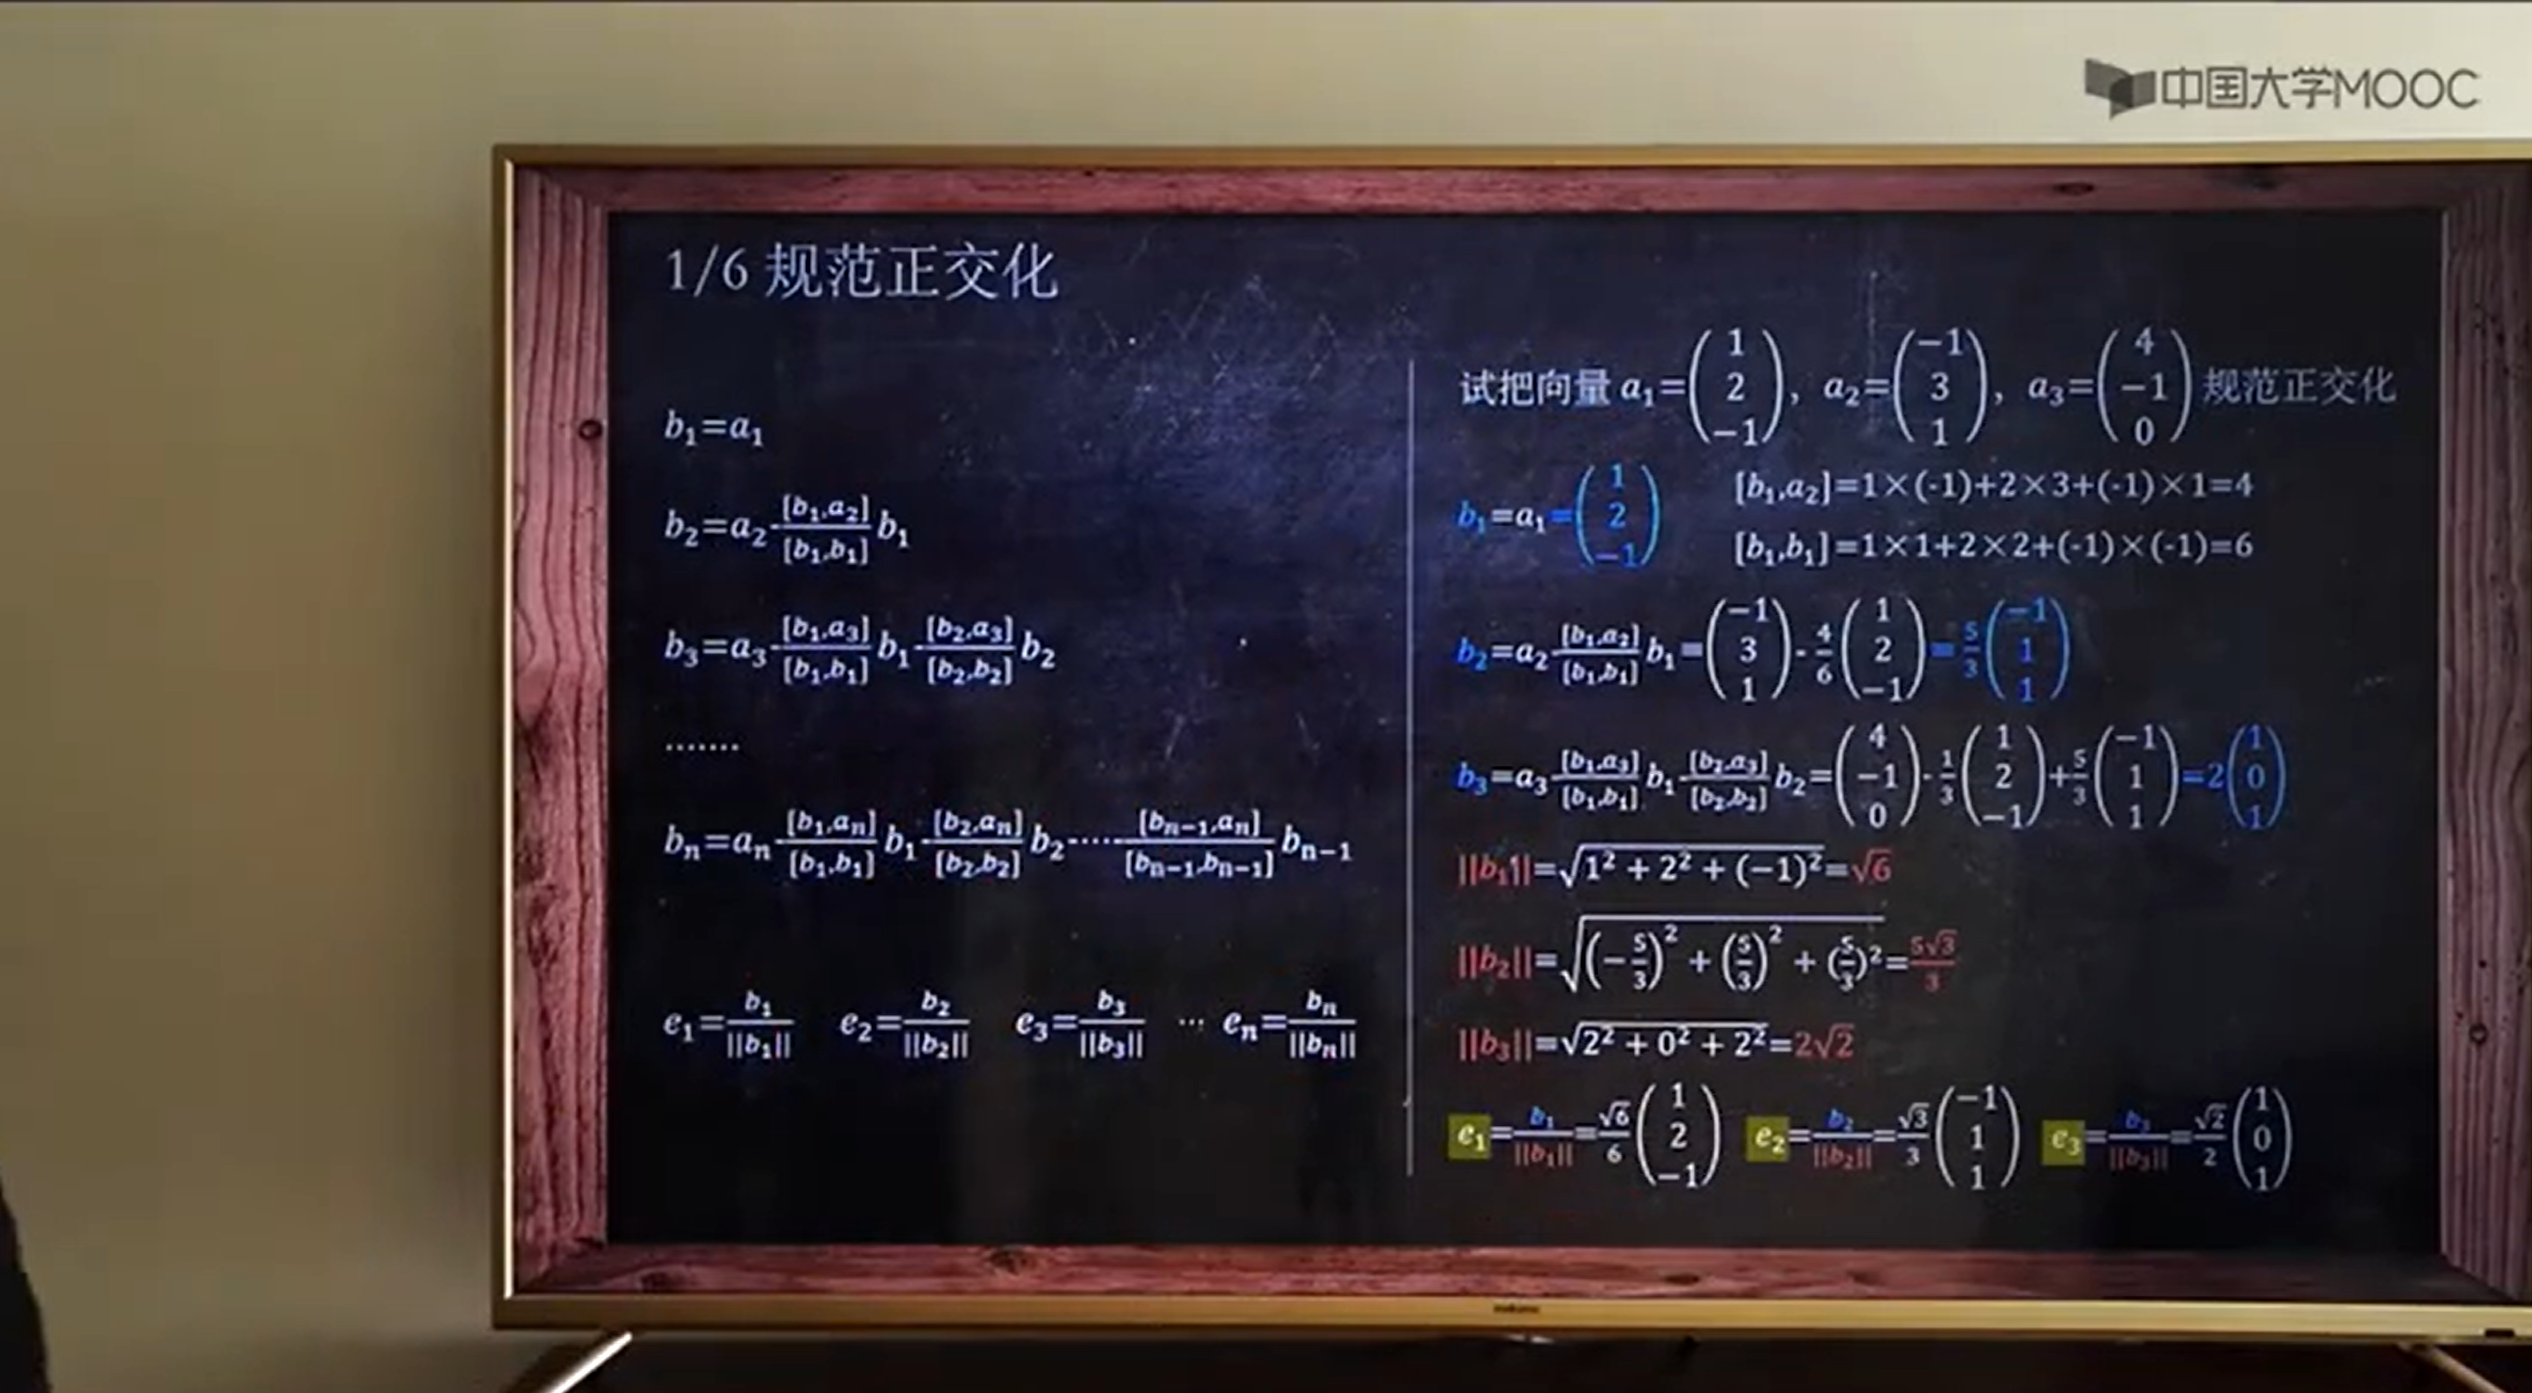 中国大学MOOC
1/6 规范正交化
b₁=a₁
b₂=a₂-[b₁,a₂]/[b₁,b₁] b₁
b₃=a₃-[b₁,a₃]/[b₁,b₁] b₁-[b₂,a₃]/[b₂,b₂] b₂
.......
bₙ=aₙ-[b₁,aₙ]/[b₁,b₁] b₁-[b₂,aₙ]/[b₂,b₂] b₂-····-[bₙ₋₁,aₙ]/[bₙ₋₁,bₙ₋₁] bₙ₋₁
e₁=b₁/||b₁|| e₂=b₂/||b₂|| e₃=b₃/||b₃|| ··· eₙ=bₙ/||bₙ||
试把向量 a₁=(1 2 −1), a₂=(−1 3 1), a₃=(4 −1 0) 规范正交化
b₁=a₁=(1 2 −1)
[b₁,a₂]=1×(-1)+2×3+(-1)×1=4
[b₁,b₁]=1×1+2×2+(-1)×(-1)=6
b₂=a₂-[b₁,a₂]/[b₁,b₁] b₁=(−1 3 1)-4/6(1 2 −1)=5/3(−1 1 1)
b₃=a₃-[b₁,a₃]/[b₁,b₁] b₁-[b₂,a₃]/[b₂,b₂] b₂=(4 −1 0)-1/3(1 2 −1)+5/3(−1 1 1)=2(1 0 1)
||b₁||=√(1² + 2² + (−1)²)=√6
||b₂||=√((−5/3)² + (5/3)² + (5/3)²)=5√3/3
||b₃||=√(2² + 0² + 2²)=2√2
e₁=b₁/||b₁||=√6/6(1 2 −1) e₂=b₂/||b₂||=√3/3(−1 1 1) e₃=b₃/||b₃||=√2/2(1 0 1)